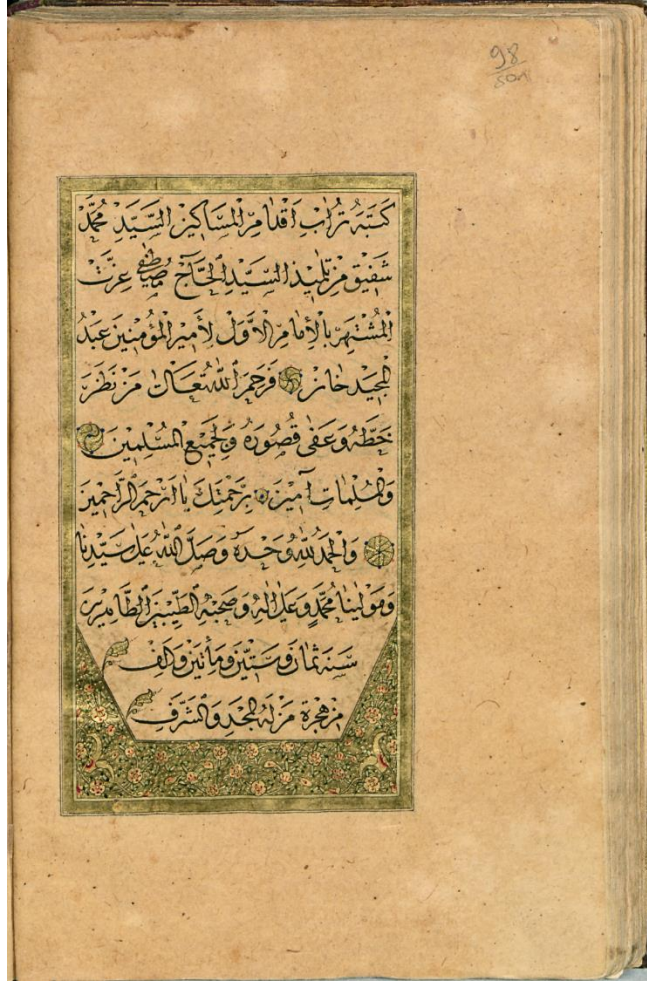 98
son
كَتَبَهُ تُرَابُ اَقْدَامِ الْمَسَاكِينِ السَّيِّدِ مُحَمَّدْ
شَفِيقْ مِنْ تَلَمِيذِ السَّيِّدِ الْحَاجّ مُصْطَفٰى عِزَّتْ
الْمُشْتَهِرِ بِالْأِمَامِ الْاَوَّلِ لِأَمِيرِ الْمُؤْمِنِينَ عَبْدُ
الْمَجِيدْ خَانْ فَرَحِمَ اللّٰهُ تَعَالٰى مَنْ نَظَرَ
خَطَّهُ وَعَفٰى قُصُورَهُ وَلِجَمِيعِ الْمُسْلِمِينَ
وَالْمُسْلِمَاتِ اٰمِينَ بِرَحْمَتِكَ يَا اَرْحَمَ الرَّاحِمِينَ
وَالْحَمْدُ لِلّٰهِ وَحْدَهُ وَصَلَّى اللّٰهُ عَلٰى سَيِّدِنَا
وَمَوْلٰينَا مُحَمَّدٍ وَعَلٰى اٰلِهِ وَصَحْبِهِ الطَّيِّبِينَ الطَّاهِرِينَ
سَنَةَ ثَمَانَ وَسِتِّينَ وَمِأَتَيْنِ وَاَلْفِ
مِنْ هِجْرَةِ مَنْ لَهُ الْمَجْدِ وَالشَّرَفِ